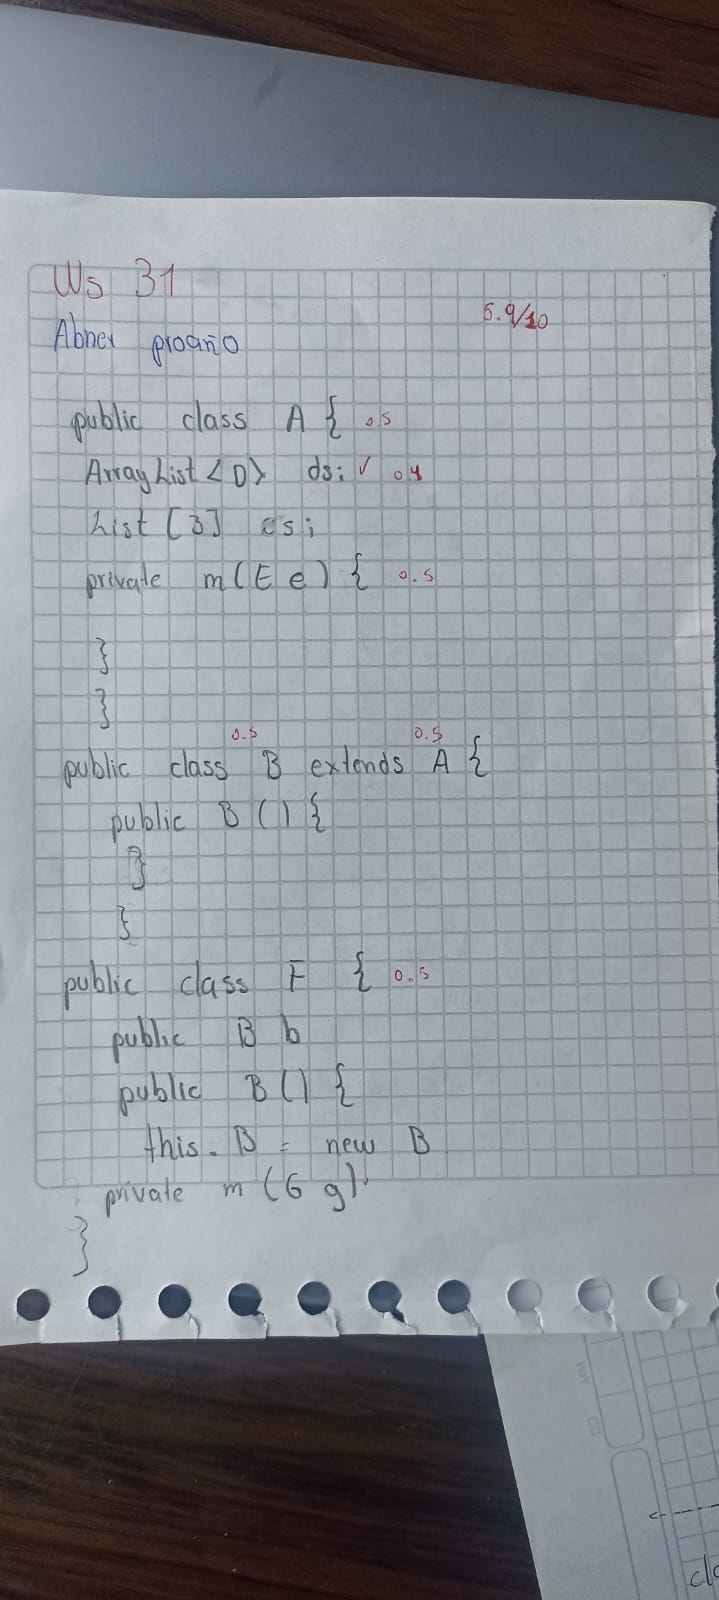 Ws 31
5.9/10
Abner proaño
public class A { 0.5
ArrayList<D> ds; ✓ 0.4
List [3] cs;
private m(E e) { 0.5
}
}
0.5 0.5
public class B extends A {
public B () {
}
}
public class F { 0.5
public B b
public B() {
this. B = new B
private m (G g).
}